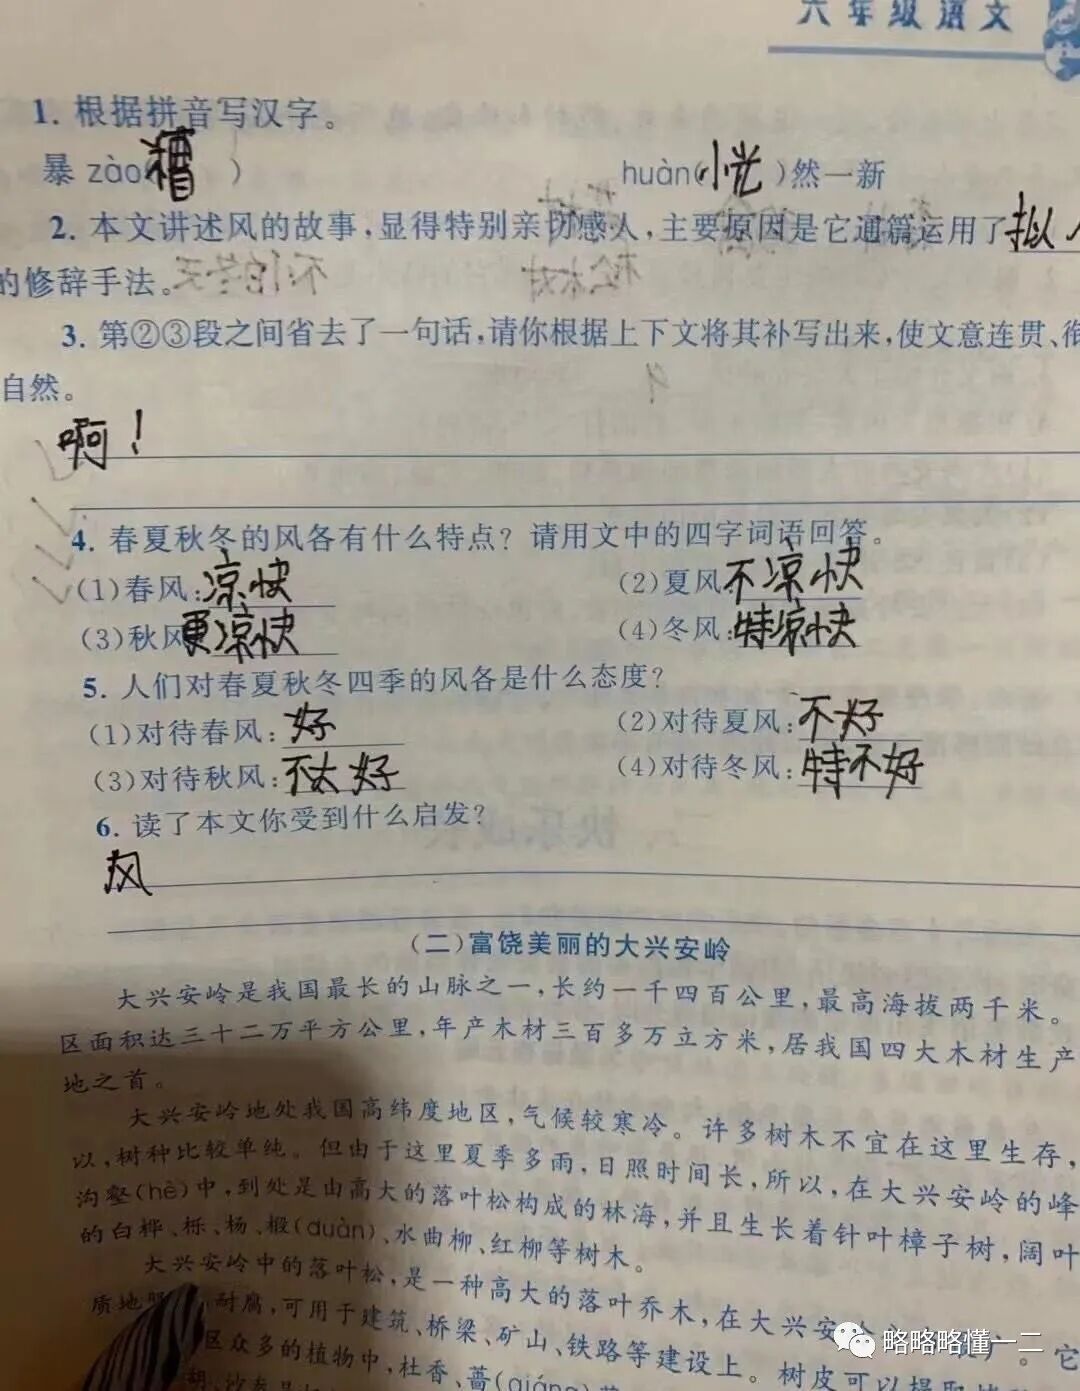 六年级语文
1. 根据拼音写汉字。
暴 zào(糟 ) huàn(恍 )然一新
2. 本文讲述风的故事,显得特别亲切感人,主要原因是它通篇运用了拟人
的修辞手法。
3. 第②③段之间省去了一句话,请你根据上下文将其补写出来,使文意连贯、衔
自然。
啊!
4. 春夏秋冬的风各有什么特点?请用文中的四字词语回答。
(1)春风:凉快 (2)夏风不凉快
(3)秋风:更凉快 (4)冬风:特凉快
5. 人们对春夏秋冬四季的风各是什么态度?
(1)对待春风:好 (2)对待夏风:不好
(3)对待秋风:不太好 (4)对待冬风:特不好
6. 读了本文你受到什么启发?
风
(二)富饶美丽的大兴安岭
大兴安岭是我国最长的山脉之一,长约一千四百公里,最高海拔两千米。
区面积达三十二万平方公里,年产木材三百多万立方米,居我国四大木材生产
地之首。
大兴安岭地处我国高纬度地区,气候较寒冷。许多树木不宜在这里生存,
以,树种比较单纯。但由于这里夏季多雨,日照时间长,所以,在大兴安岭的峰
沟壑(hè)中,到处是由高大的落叶松构成的林海,并且生长着针叶樟子树,阔叶
的白桦、栎、杨、椴(duàn)、水曲柳、红柳等树木。
大兴安岭中的落叶松,是一种高大的落叶乔木,在大兴安
质地 耐腐,可用于建筑、桥梁、矿山、铁路等建设上。树皮可以提取
区众多的植物中,杜香、蔷(qiáng) 广。它
略略略懂一二